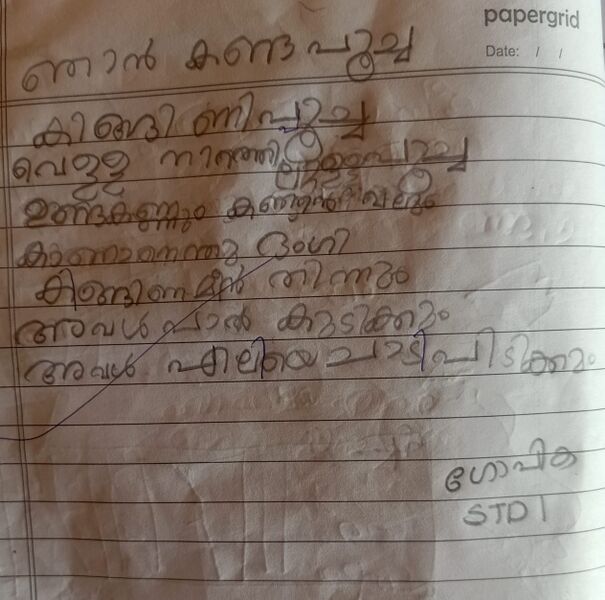 papergrid
Date: / /
ഞാൻ കണ്ട പൂച്ച
കിങ്ങിണിപൂച്ച
വെള്ള നിറത്തി ലുള്ളപൂച്ച
ഉണ്ടകണ്ണും കുഞ്ഞൻ വാലും
കാണാനെന്തു ഭംഗി
കിങ്ങിണമീൻ തിന്നും
അവൾ പാൽ കുടിക്കും
അവൾ എലിയെ ചാടി പിടിക്കും
ഗോപിക
STD I